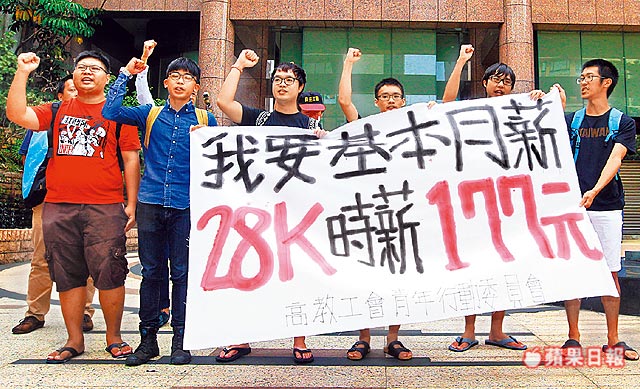 我要基本月薪
28K時薪177元
高教工會青年行動委員會
TAIWAN
蘋果日報